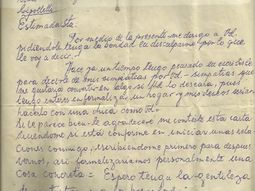 Cipolletti
Estimada Sta.
Por medio de la presente me dirijo a Ud.
pidiéndole tenga la bondad en disculparme por lo que
le voy a decir.
Hace ya un tiempo tengo pensado su
para decirle de mis simpatías por Ud. simpatías que
me gustaría convertir en algo si Ud lo deseara, pues
tengo interés en formalizar un hogar y mis deseos serían
hacerlo con una chica como Ud.
Si le parece bien le agradeceré me conteste esta carta
diciéndome si está conforme en iniciar unas rela-
ciones conmigo, escribiéndome primero para después
vernos, así formalizaríamos personalmente una
cosa concreta = Espero tenga la gentileza